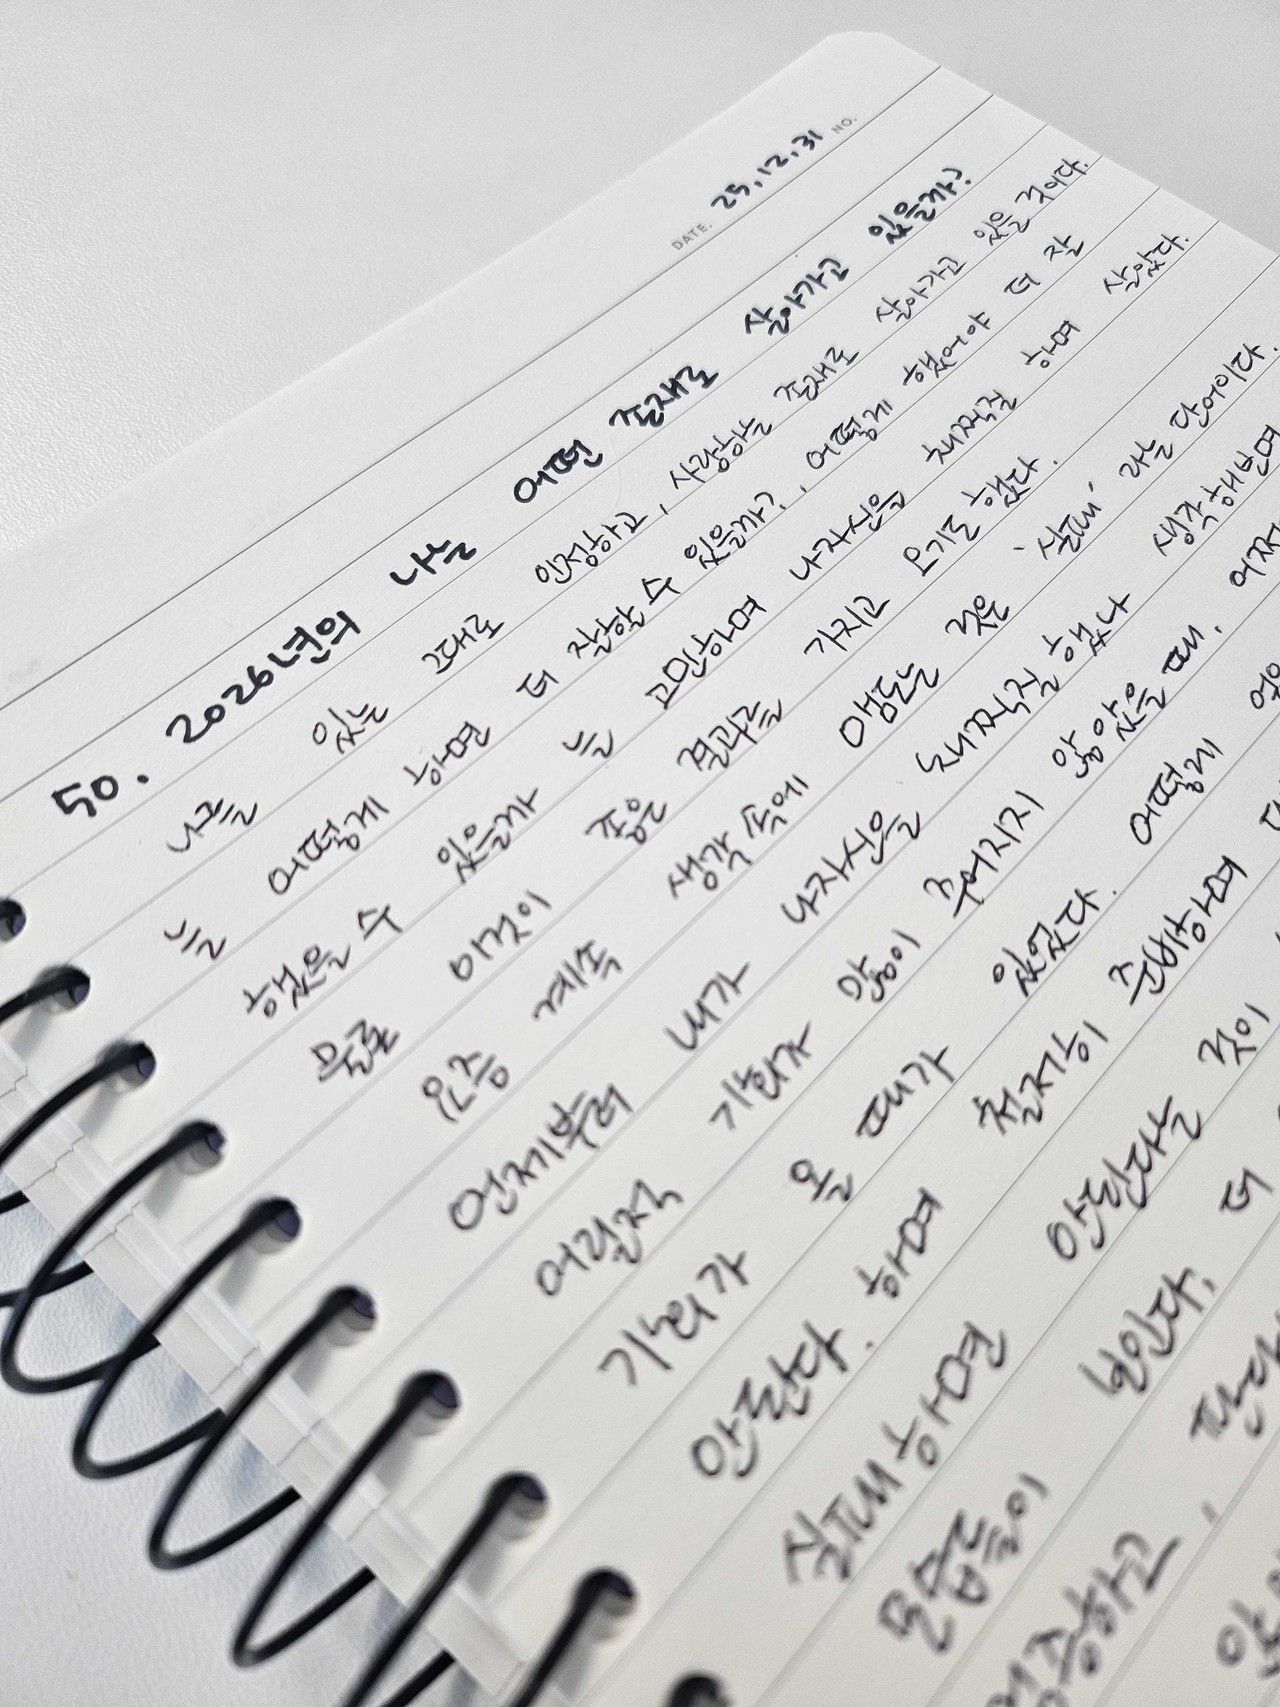 DATE. 25.12.31 NO.
50. 2026년의 나는 어떤 존재로 살아가고 있을까?
나를 있는 그대로 인정하고, 사랑하는 존재로 살아가고 있을 것이다.
늘 어떻게 하면 더 잘할 수 있을까?, 어떻게 했어야 더 잘
했을 수 있을까 늘 고민하며 나자신을 채찍질 하며 살았다.
물론 이것이 좋은 결과를 가지고 오기도 했다.
요즘 계속 생각 속에 맴도는 것은 '실패' 라는 단어이다.
언제부터 내가 나자신을 채찍질 했나 생각해보면
어릴적 기회가 많이 주어지지 않았을 때,
기회가 올 때가 있었다. 어떻게
안된다. 하며 철저히 준비하며
실패하면 안된다는 것이
모습들이 보인다. 더